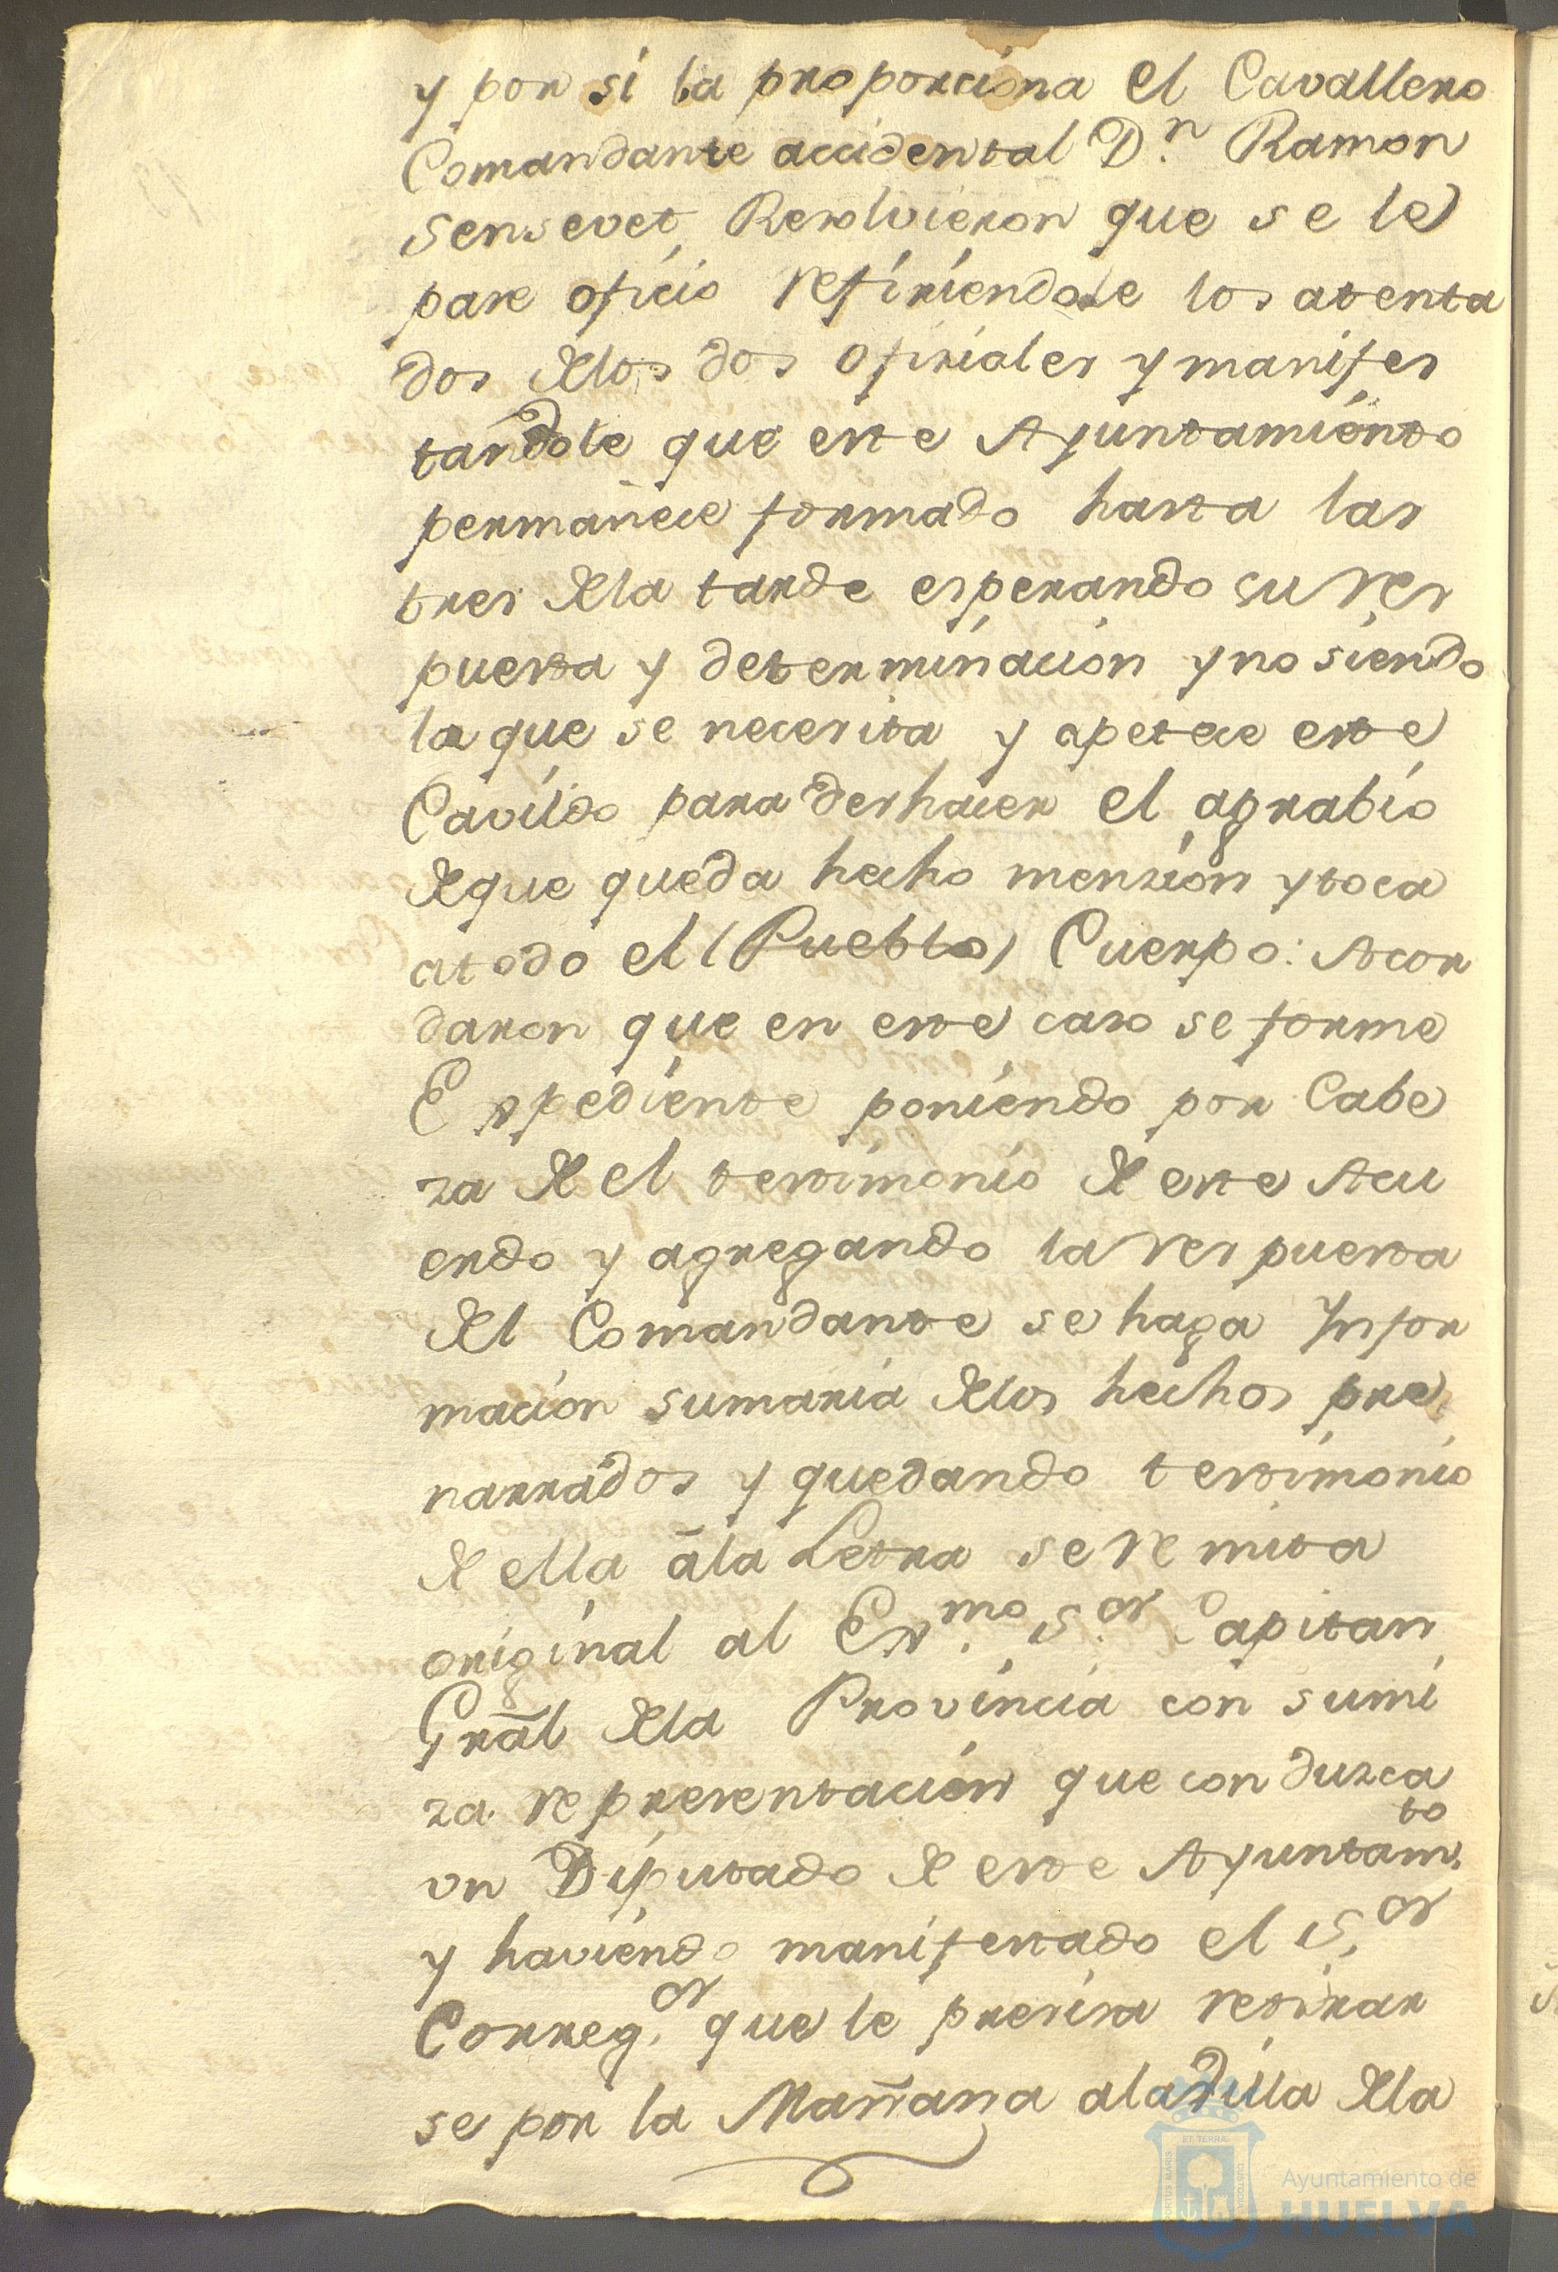 y por si la proporciona el Cavallero
Comandante accidental D.n Ramon
Sensevet, Resolvieron que se le
pase oficio refiriendole los atenta
dos delos dos oficiales y manifes
tandole que este Ayuntamiento
permanece formado hasta las
tres dela tarde esperando su res
puesta y determinacion y no siendo
la que se necesita y apetece este
Cavildo para deshacer el agrabio
de que queda hecho menzion y toca
atodo el (Pueblo) Cuerpo: Acor
daron que en este caso se forme
Expediente poniendo por Cabe
za de el testimonio de este Acu
erdo y agregando la respuesta
del Comandante se haga Infor
macion sumaria delos hechos pre
narrados y quedando testimonio
de ella àla Letra se remita
original al Ex.mo S.or Capitan
Gral dela Provincia con sumi
za representacion que conduzca
un Diputado de este Ayuntam.to
y haviendo manifestado el S.or
Correg.or que le precisa retirar
se por la Mañana ala Silla dela
ET TERRAE
Ayuntamiento de
HUELVA